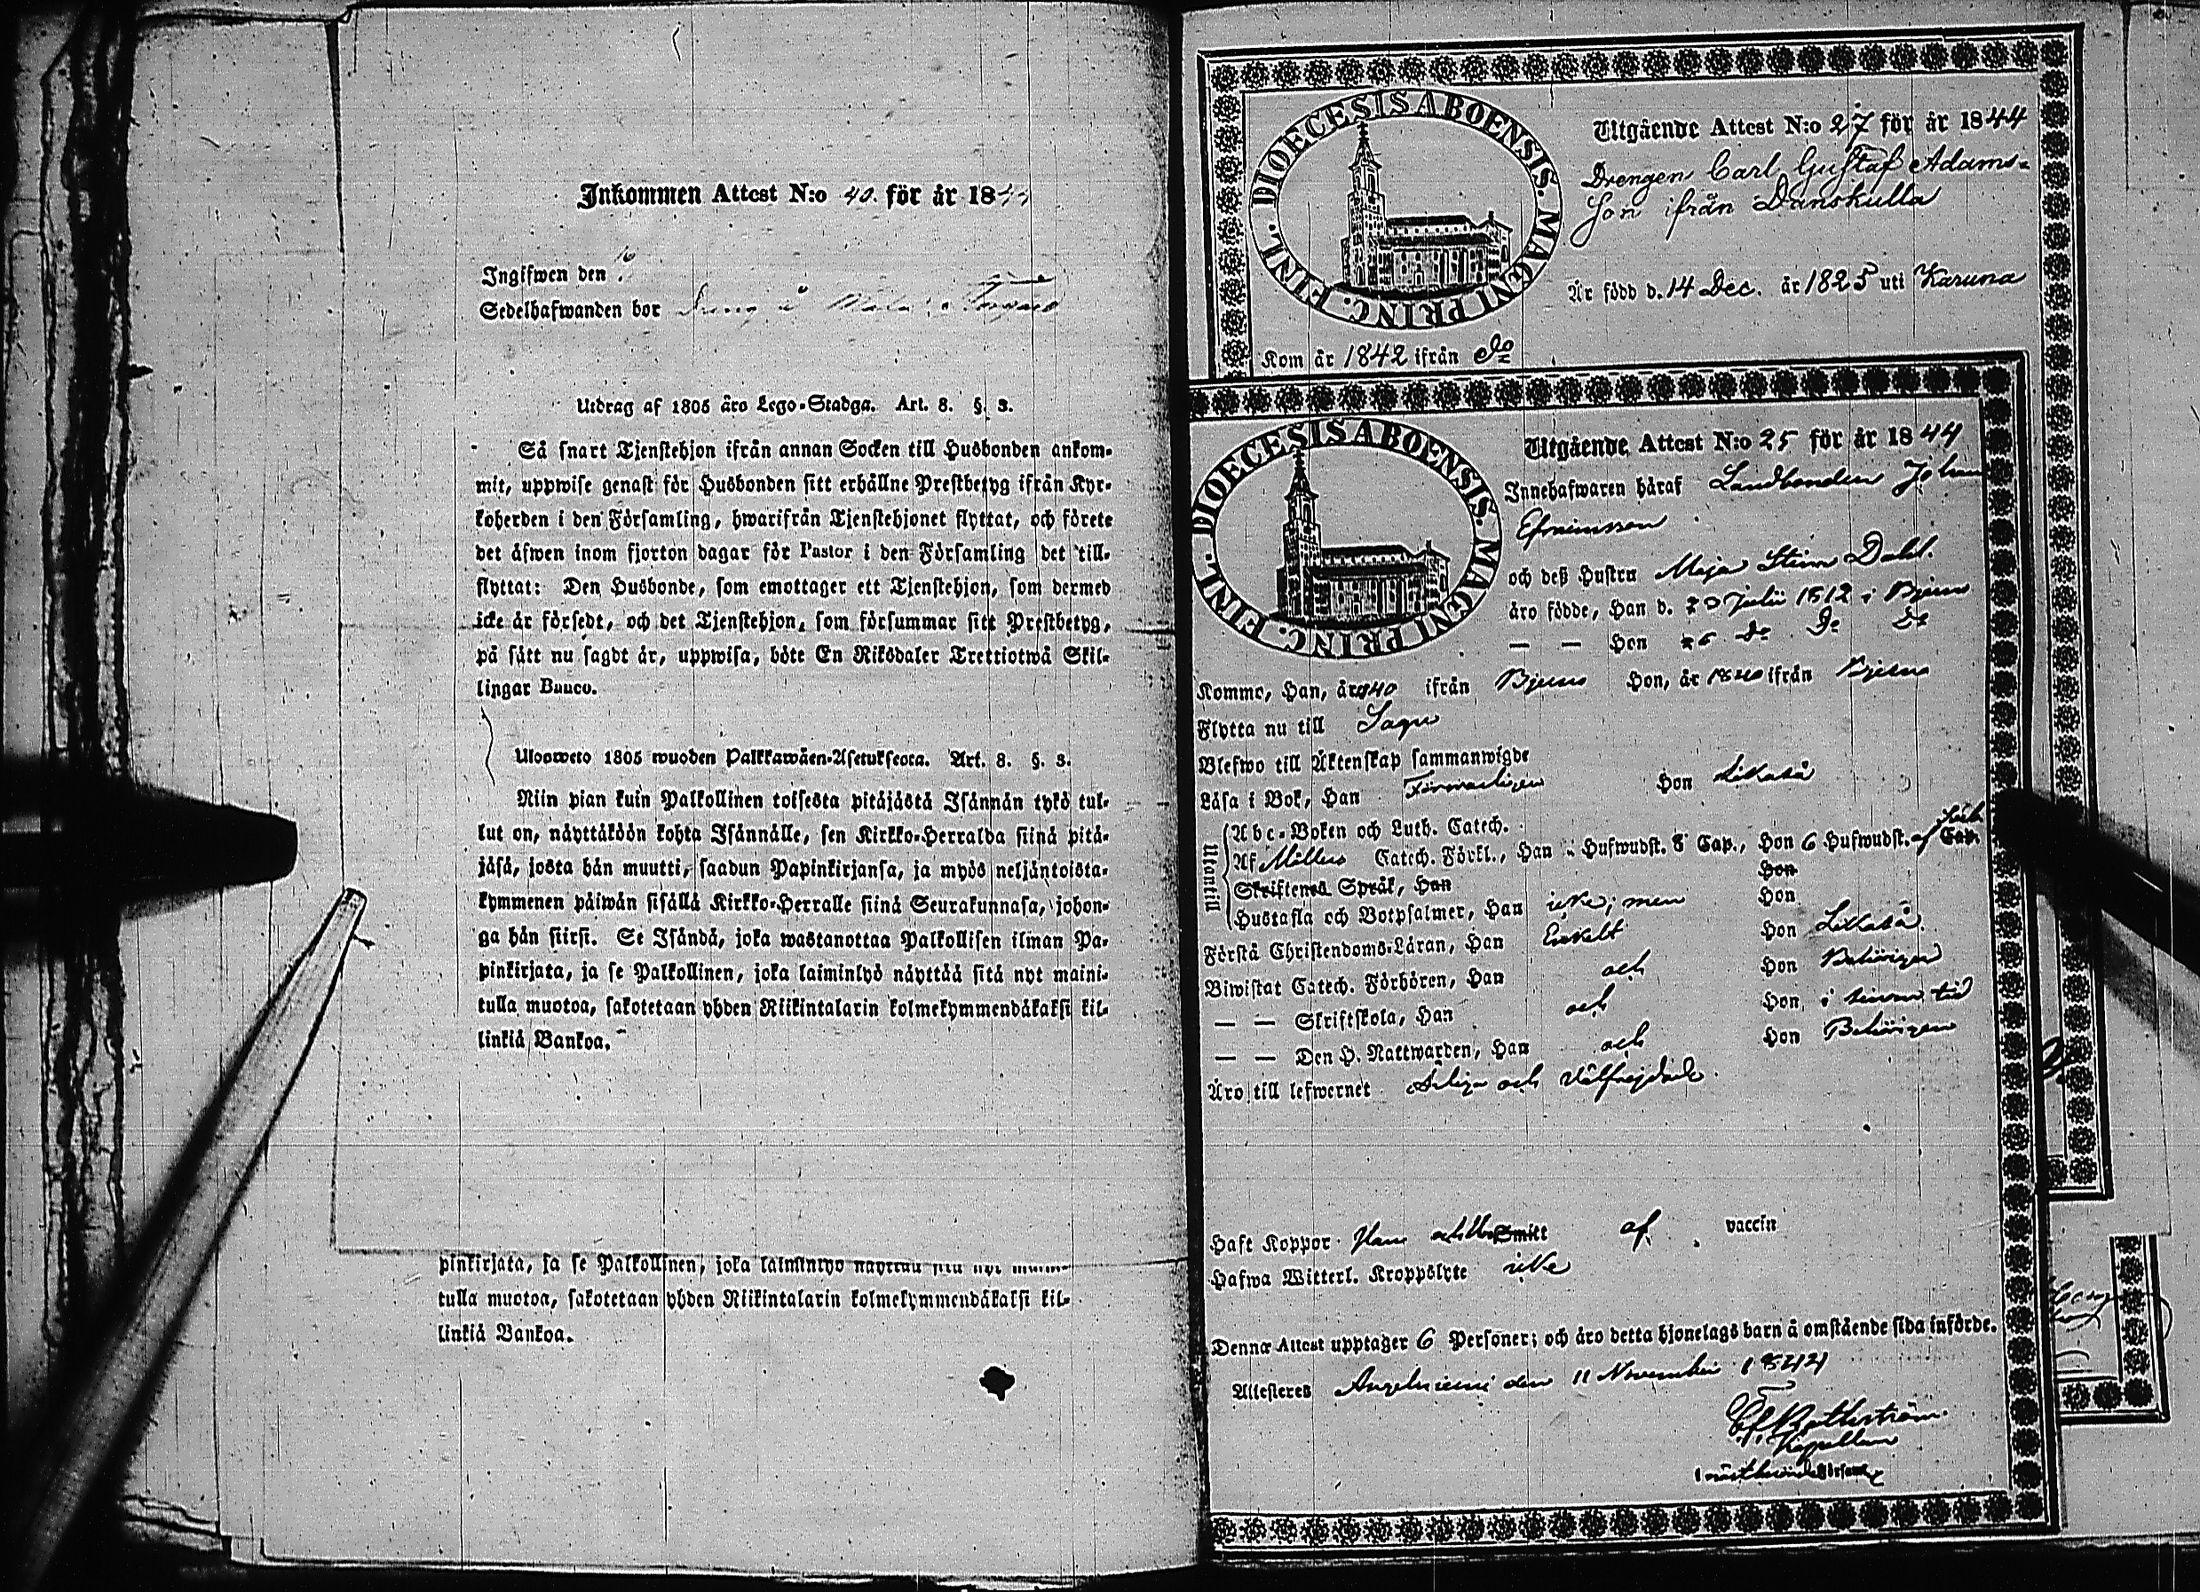 Inkommen Attest N:o 40. för år 1844
Ingifwen den
Sedelhafwanden bor Dreng å
Utdrag af 1805 åro Lego-Stadga. Art. 8. §. 3.
Så snart Tjenstehjon ifrån annan Socken till Husbonden ankom-
mit, uppwise genast för Husbonden sitt erhållne Prestbetyg ifrån Kyr-
koherden i den Församling, hwarifrån Tjenstehjonet flyttat, och förete
det äfwen inom fjorton dagar för Pastor i den Församling det till-
flyttat: Den Husbonde, som emottager ett Tjenstehjon, som dermed
icke är försedt, och det Tjenstehjon, som försummar sitt Prestbetyg,
på sätt nu sagdt är, uppwisa, böte En Riksdaler Trettiotwå Skil-
lingar Banco.
Ulosweto 1805 wuoden Palkkawäen-Asetuksesta. Art. 8. §. 3.
Niin pian kuin Palkollinen toisesta pitäjästä Isännän tykö tul-
lut on, näyttäköön kohta Isännälle, sen Kirkko-Herralda siinä pitä-
jäsä, josta hän muutti, saadun Papinkirjansa, ja myös neljäntoista-
kymmenen päiwän sisällä Kirkko-Herralle siinä Seurakunnasa, johon-
ga hän siirsi. Se Isändä, joka wastanottaa Palkollisen ilman Pa-
pinkirjata, ja se Palkollinen, joka laiminlyö näyttää sitä nyt maini-
tulla muotoa, sakotetaan yhden Riikintalarin kolmekymmendäkaksi kil-
linkiä Bankoa.
pinkirjata, ja se Palkollinen, joka laiminlyö näyttää sitä nyt maini-
tulla muotoa, sakotetaan yhden Riikintalarin kolmekymmendäkaksi kil-
linkiä Bankoa.
DIOECESIS ABOENSIS. MAGNI PRINC. FINL.
Utgående Attest N:o 27 för år 1844
Drengen Carl Gustaf Adams-
son ifrån Danskulla
Är född d. 14 Dec. år 1825 uti Karuna
Kom år 1842 ifrån do
DIOECESIS ABOENSIS. MAGNI PRINC. FINL.
Utgående Attest N:o 25 för år 1844
Innehafwaren häraf Landbonden Johan
Efraimsson
och deß Hustru Maja Stina Dahl.
äro födde, Han d. 30 Julii 1812 i Bjerno
— — Hon 26 do do do
Komne, Han, år 1840 ifrån Bjerno Hon, år 1840 ifrån Bjerno
Flytta nu till Sagu
Blefwo till Äktenskap sammanwigde
Läsa i Bok, Han Förswarligen Hon Likaså
Utantill
Abc-Boken och Luth. Catech.
Af Möllers Catech. Förkl., Han Hufwudst. 8 Cap., Hon 6 Hufwudst. af Cap.
Skriftenes Språk, Han Hon
Hustafla och Botpsalmer, Han icke; men Hon
Förstå Christendoms-Läran, Han Enkelt Hon Likaså.
Biwistat Catech. Förhören, Han och Hon Behörigen
— — Skriftskola, Han och Hon, i sinom tid
— — Den H. Nattwarden, Han och Hon Behörigen
Äro till lefwernet Ärliga och Välfrejdade.
Haft Koppor Smitt af vaccin
Hafwa Witterl. Kroppslyte icke
Denna Attest upptager 6 Personer; och äro detta hjonelags barn å omstående sida införde.
Attesteres Angelniemi den 11 November 1844
Kapellan